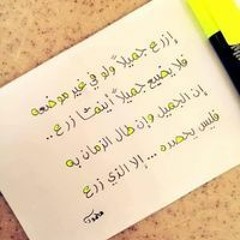 إزرع جميلاً ولو في غير موضعه
فلا يضيع جميلاً أينما زرع..
إن الجميل وإن طال الزمان به
فليس يحصده ... إلا الذي زرع